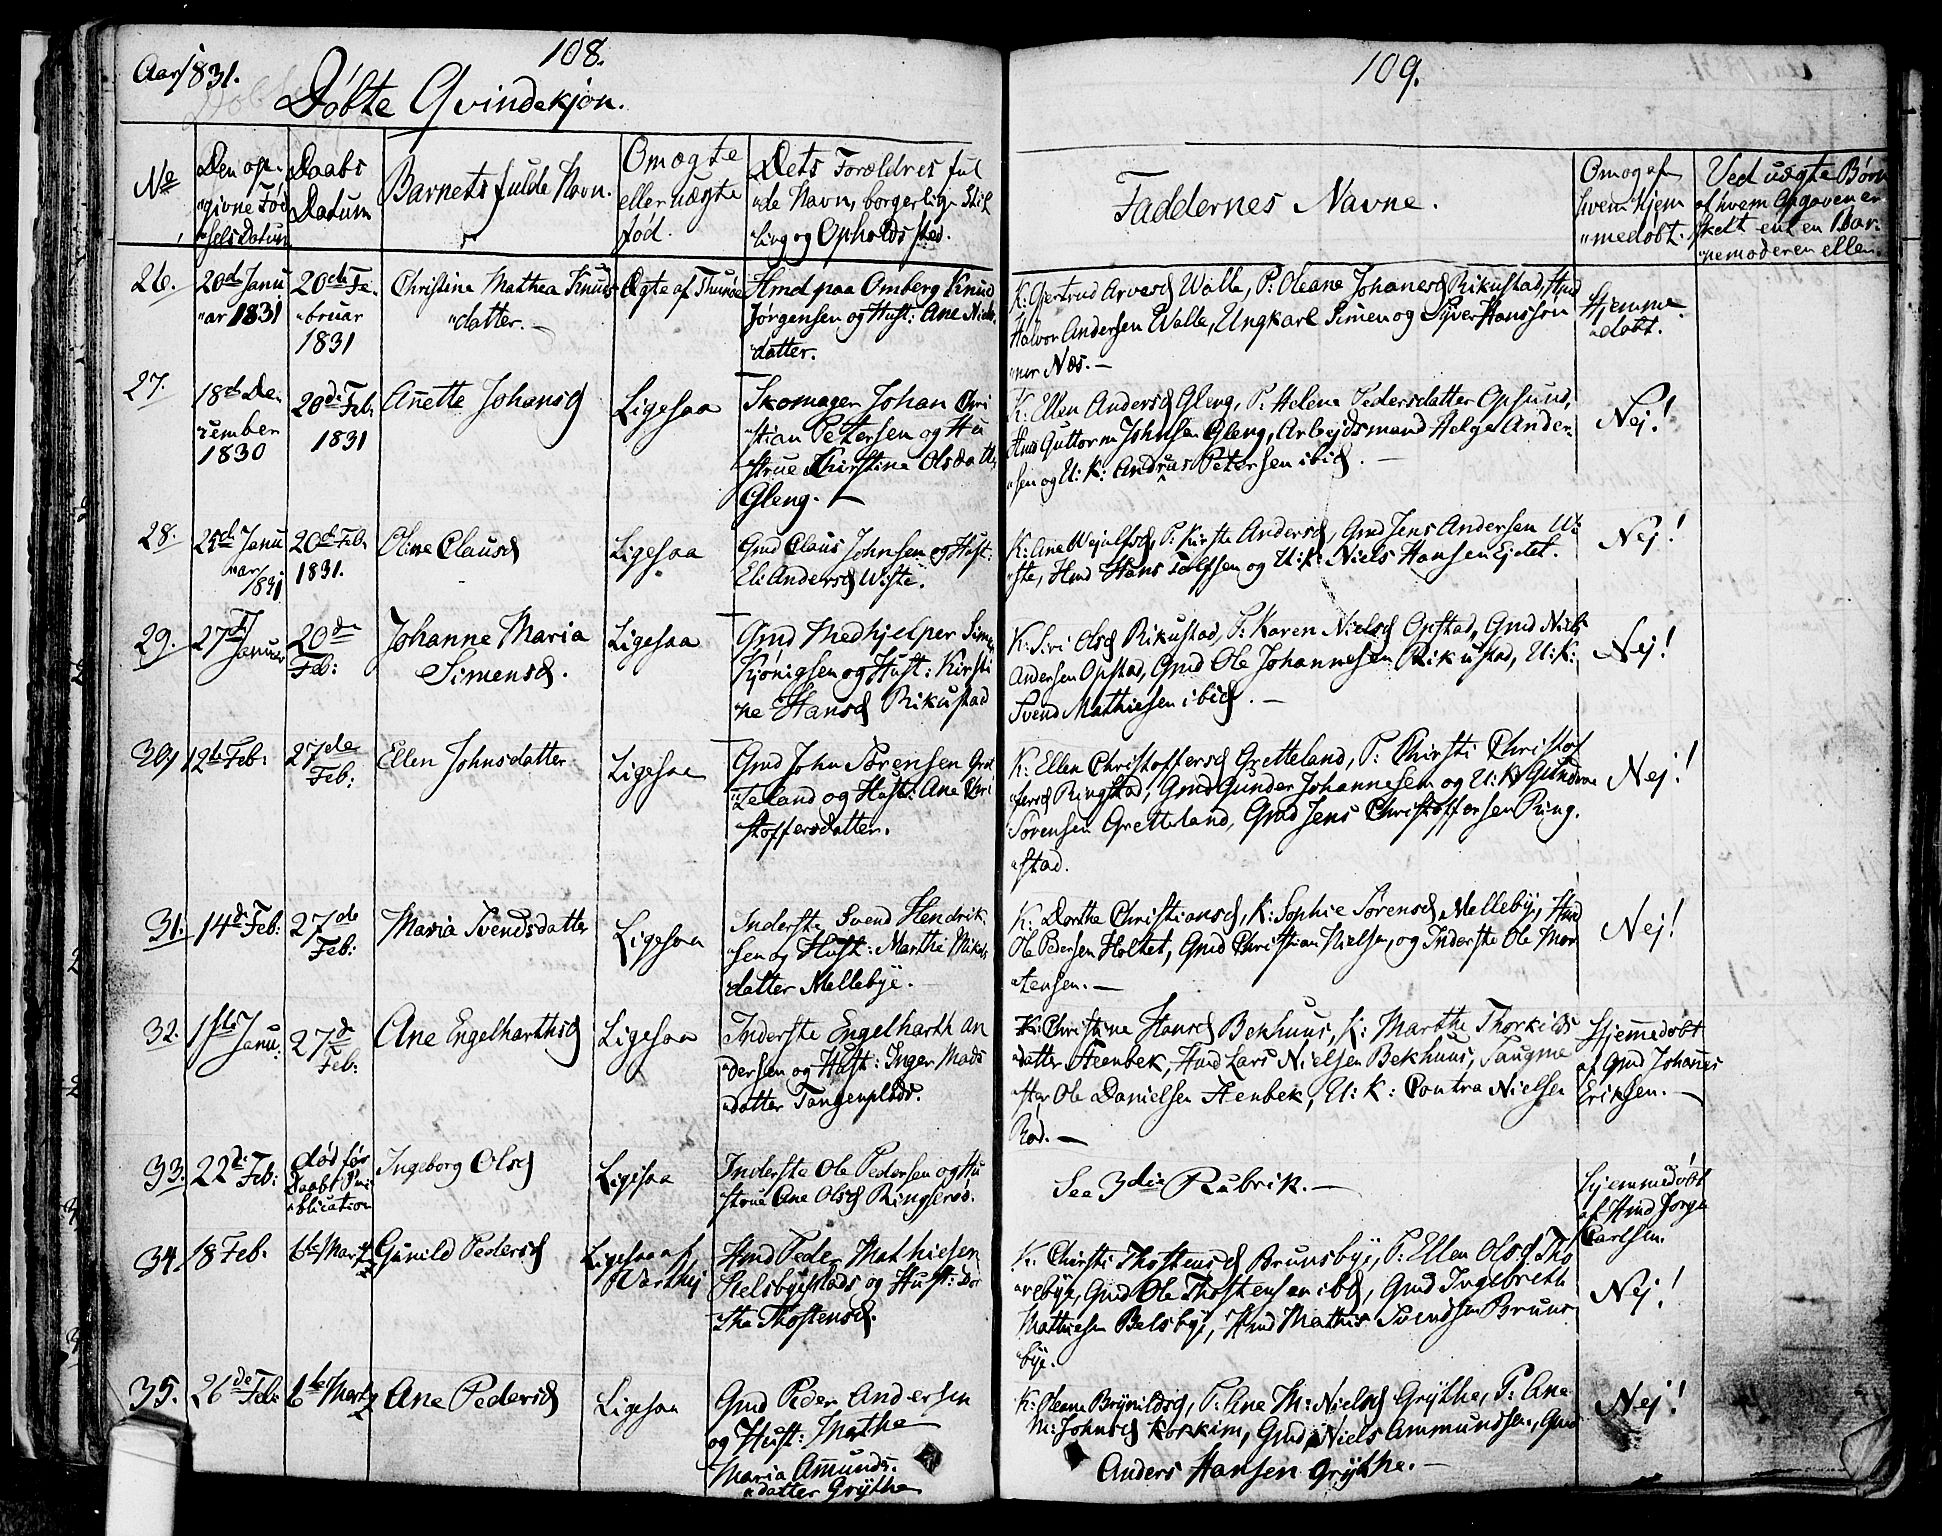 Aar 1831.
108.
Døbte Qvindekjøn.
No
Den op-
givne Fød
selsDatum
Daabs
Datum
Barnets fulde Navn.
Om ægte
eller uægte
fød.
Dets Forældres ful
de Navn, borgerlige Stil
ling og Opholdssted.
109.
Faddernes Navne.
Om og af
hvem hjem
medøbt.
Ved uægte Børn
af hvem Opgaven er
skett enten Bar-
nemoderen eller
26.
20de Janu
ar 1831
20de Fe-
bruar
1831
Christine Mathea Knuds
datter.
Ægte af Thunøe
Hmd paa Omberg Knud
Jørgensen og Hust: Ane Niels
datter.
K: Gjertrud Arvesd Walle, P: Oleane Johanesd Rikustad, Hmd
Halvor Andersen Walle, Ungkarl Simen og Syver Hanssøn
ner Næs.
Hjemme
døbt.
27.
18de De
cember
1830
20de Feb.
1831
Anette Johansd
Ligesaa
Skomager Johan Chri
stian Petersen og Hu
strue Christine Olsdatt
Gleng.
K: Ellen Andersd Gleng, P: Helene Pedersdatter Opsund,
Hmd Guttorm Johnsen Gleng, Arbejdsmand Helge Ander-
sen og U: K: Andreas Petersen ibid.
Nej!
28.
25de Janu
ar 1831
20de Feb.
1831.
Oline Clausd
Ligesaa
Gmd Claus Johnsen og Hust:
Eli Andersd Wiste.
K: Ane Wejulfsd, P: Kirste Andersd, Gmd Jens Andersen Wi
ste, Hmd Hans Tolfsen og U: K: Niels Hansen Ejdet.
Nej!
29.
27de
Januar
20de
Feb:
Johanne Maria
Simensd.
Ligesaa
Gmd Medhjelper Simen
Kjønigsen og Hust: Kirsti
ne Hansd Rikustad
K: Siri Olsd Rikustad, P: Karen Nielsd Opstad, Gmd Niels
Andersen Opstad, Gmd Ole Johannesen Rikustad, U: K:
Svend Mathiesen ibid.
Nej!
30,
12te Feb:
27de
Feb:
Ellen Johnsdatter
Ligesaa
Gmd John Sørensen Gret
teland og Hust: Ane Chri
stoffersdatter.
K: Ellen Christoffersd Gretteland, P: Chirsti Christof
fersd Ringstad, Gmd Gunder Johannesen og U: K: Gunder
Sørensen Gretteland, Gmd Jens Christoffersen Ring
stad.
Nej!
31.
14de Feb:
27de
Feb:
Maria Svendsdatter
Ligesaa
Inderste Svend Hendrik
sen og Hust: Marthe Nikols
datter Mellebye.
K: Dorthe Christiansd, K: Sophie Sørensd, Mellebye, Hmd
Ole Pedersen Holtet, Gmd Christian Nielsen, og Inderste Ole Mor
tensen.
Nej!
32.
1ste
Janu:
27de
Feb:
Ane Engelharthsd
Ligesaa
Inderste Engelharth An
dersen og Hust: Inger Mads
datter Tangenplads.
K: Christine Hansd Bekhuus, K: Marthe Thorkilds
datter Steenbek, Hmd Lars Nielsen Bekhuus, Saugme
ster Ole Danielsen Stenbek, U: K: Contra Nielsen
Rød.
Hjemmedøbt
af Gmd Johanes
Eriksen.
33.
22de Feb:
død før
Daabs Pu
blication
Ingeborg Olsd
Ligesaa
Inderste Ole Pedersen og Hu
strue Ane Olsd Ringserød.
See 3die Rubrik.
Hjemmedøbt
af Hmd Jørgen
Carlsen.
34.
18 Feb.
6te Marty
Gunild Pedersd
Ligesaa af
Warthej
Hmd Peder Mathiesen
Helsbyeplads og Hust: Dor
the Thostensd.
K: Chirsti Thostensd Brunsbye, P: Ellen Olsd Tho
rebye, Gmd Ole Thostensen ibd, Gmd Ingebreth
Mathiesen Belsbye, Hmd Mathis Svendsen Bruns
bye.
Nej!
35.
26de Feb:
6te Marty
Ane Pedersd
Ligesaa
Gmd Peder Andersen
og Hust: Mathe
Maria Amunds-
datter Grythe
K: Oleane Brynildsd, P: Ane M: Nielsd Grythe, P: Ane
M: Johnsd Korkim, Gmd Niels Ammundsen, Gmd
Anders Hansen Grythe.
Nej!